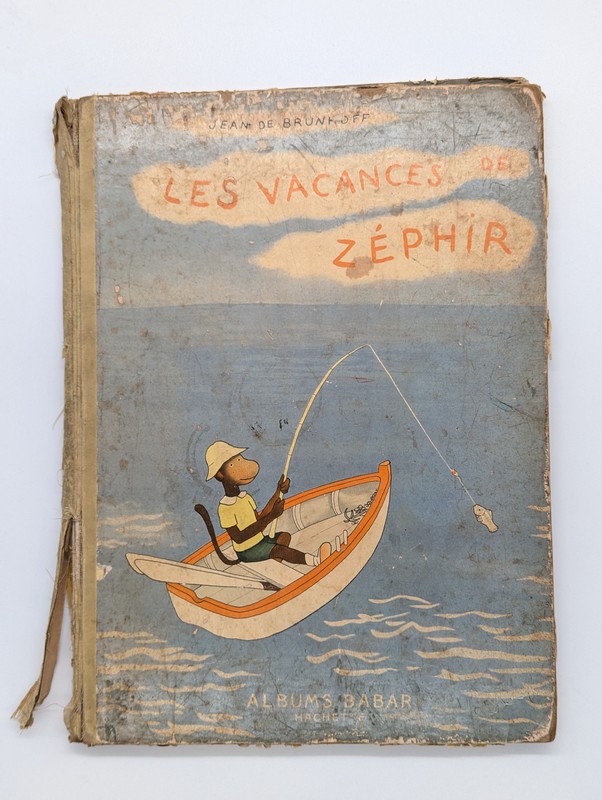 JEAN DE BRUNHOFF
LES VACANCES DE
ZÉPHIR
ALBUMS BABAR
HACHETTE